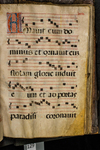 Amavit eum do
minus et ornauit eum
stolam glorie induit
eum et ad portas
paradisi coronauit